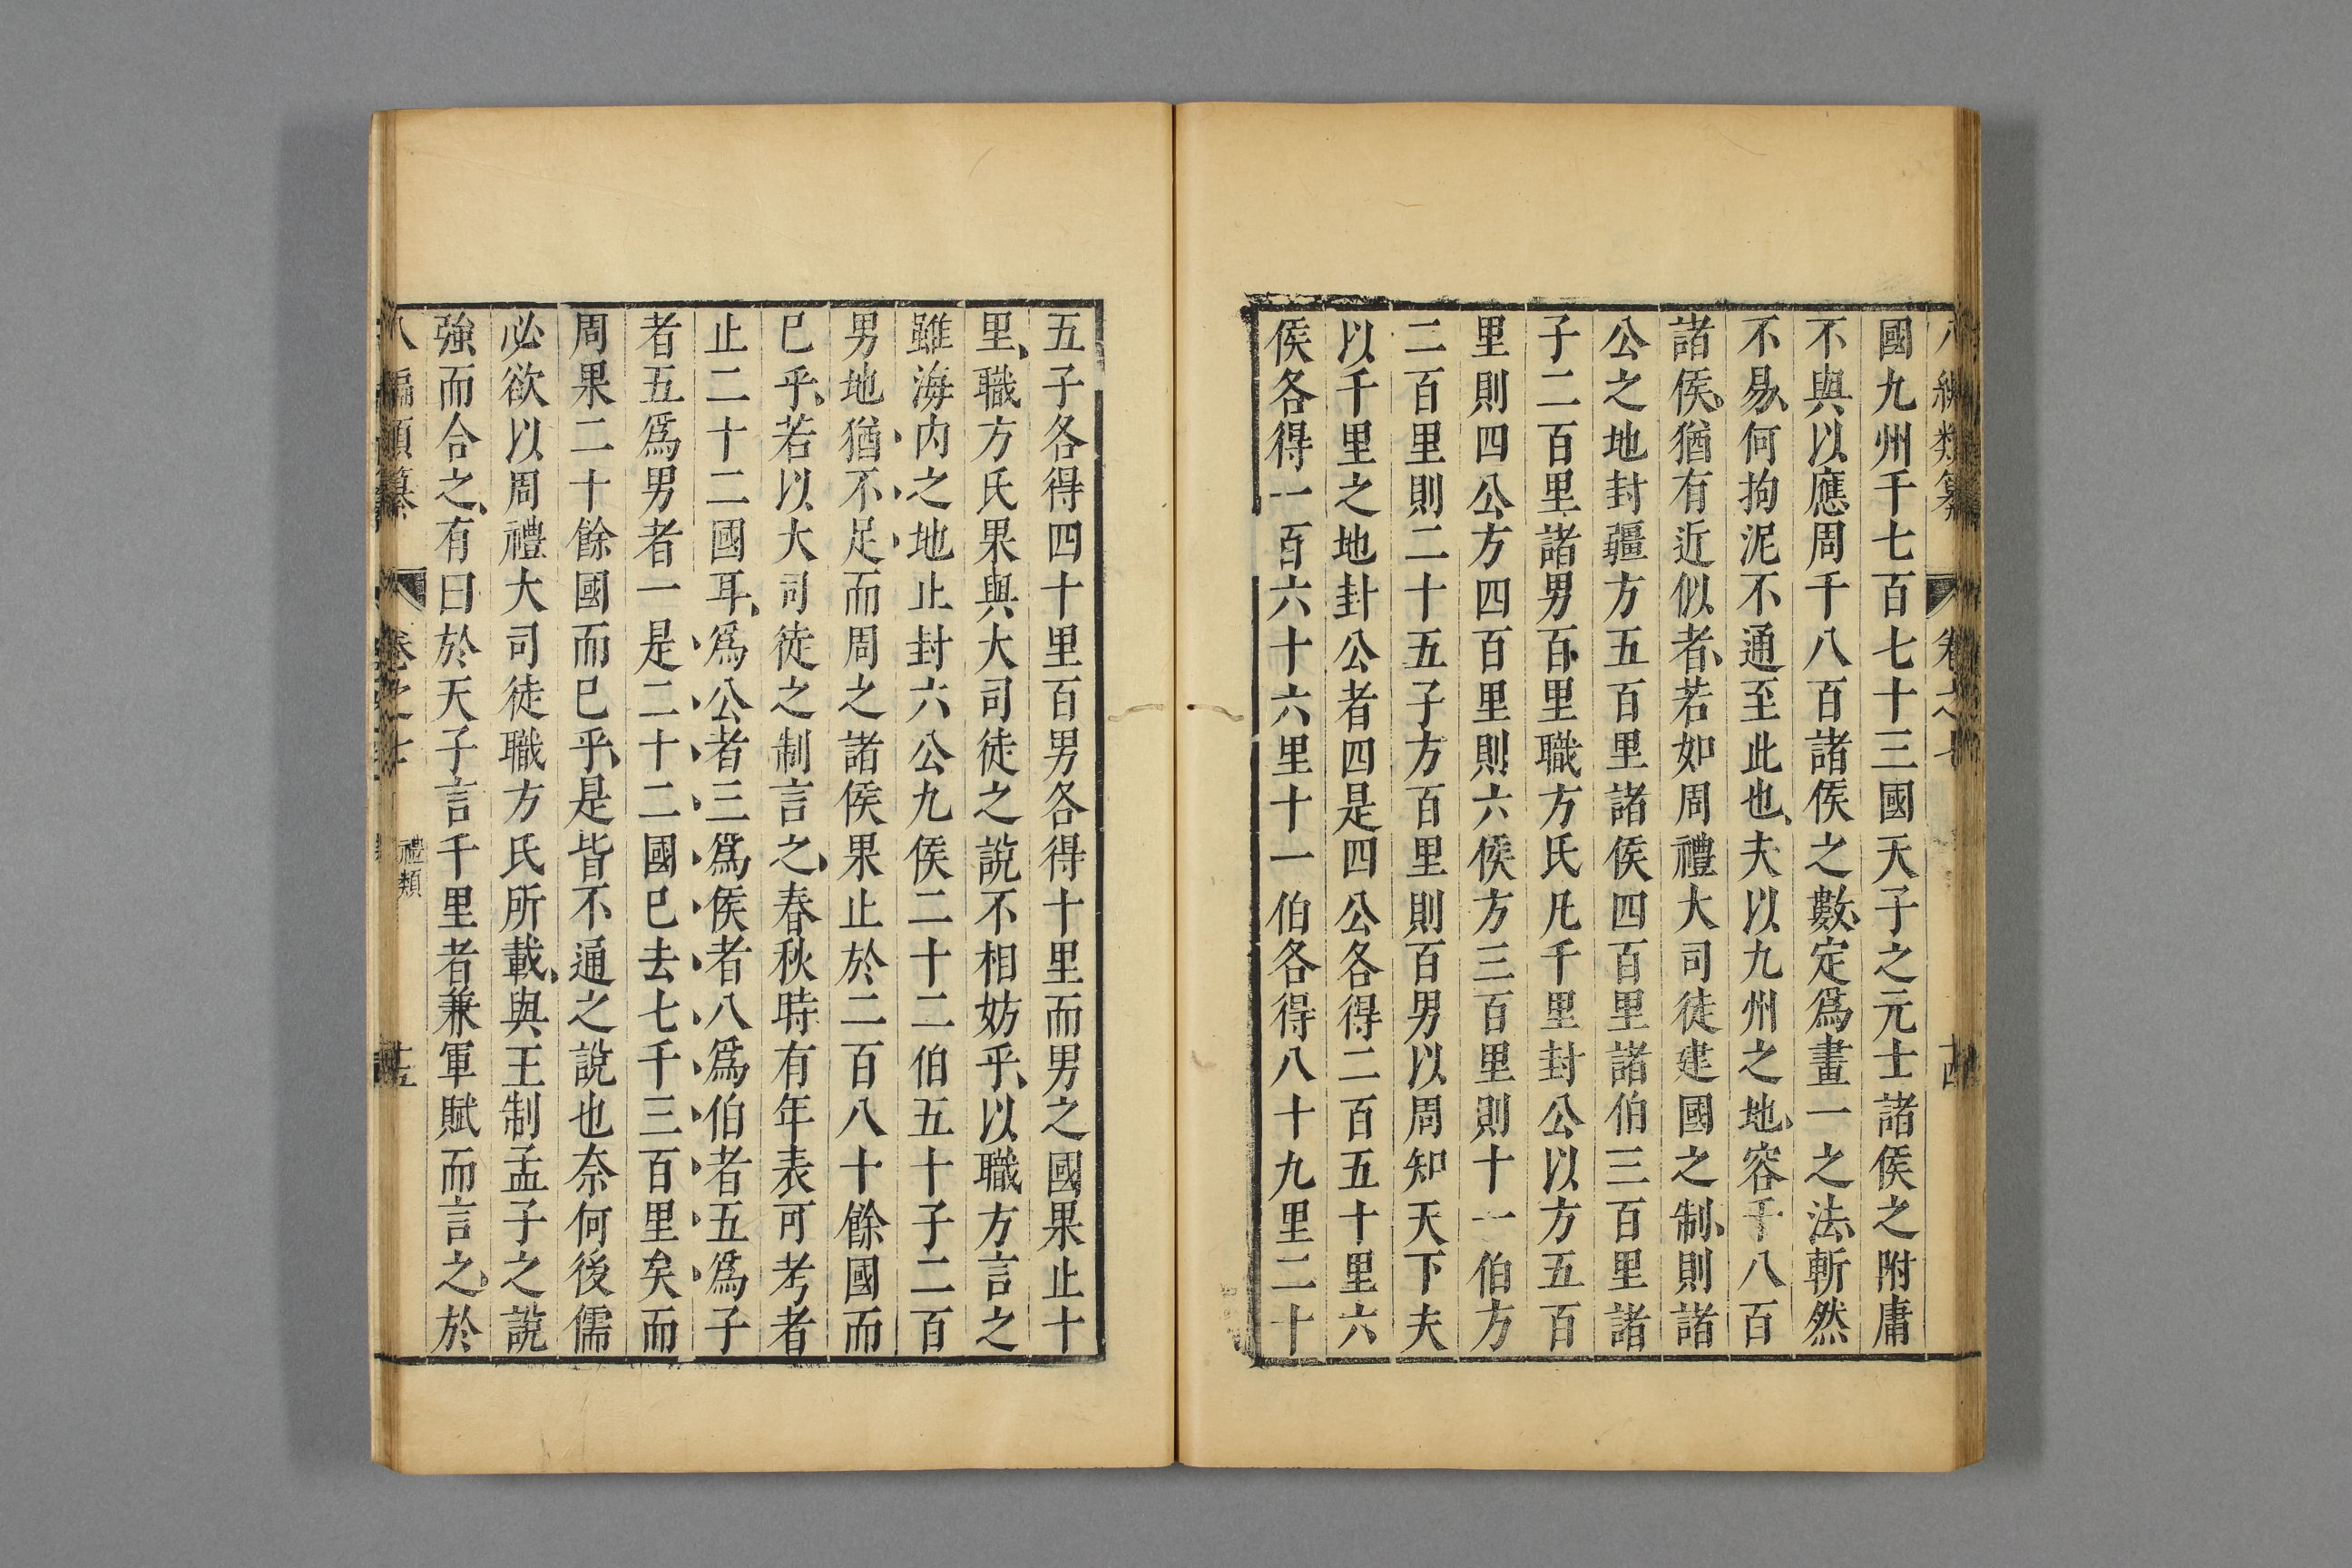 八編類纂 卷之七 十四
國九州千七百七十三國天子之元士諸侯之附庸
不與以應周千八百諸侯之數定爲畫一之法斬然
不易何拘泥不通至此也夫以九州之地容千八百
諸侯猶有近似者若如周禮大司徒建國之制則諸
公之地封疆方五百里諸侯四百里諸伯三百里諸
子二百里諸男百里職方氏凡千里封公以方五百
里則四公方四百里則六侯方三百里則十一伯方
二百里則二十五子方百里則百男以周知天下夫
以千里之地封公者四是四公各得二百五十里六
侯各得一百六十六里十一伯各得八十九里二十
五子各得四十里百男各得十里而男之國果止十
里職方氏果與大司徒之說不相妨乎以職方言之
雖海內之地止封六公九侯二十二伯五十子二百
男地猶不足而周之諸侯果止於二百八十餘國而
巳乎若以大司徒之制言之春秋時有年表可考者
止二十二國耳爲公者三爲侯者八爲伯者五爲子
者五爲男者一是二十二國巳去七千三百里矣而
周果二十餘國而巳乎是皆不通之說也奈何後儒
必欲以周禮大司徒職方氏所載與王制孟子之說
強而合之有曰於天子言千里者兼軍賦而言之於
八編類纂 卷之七 禮類 十五